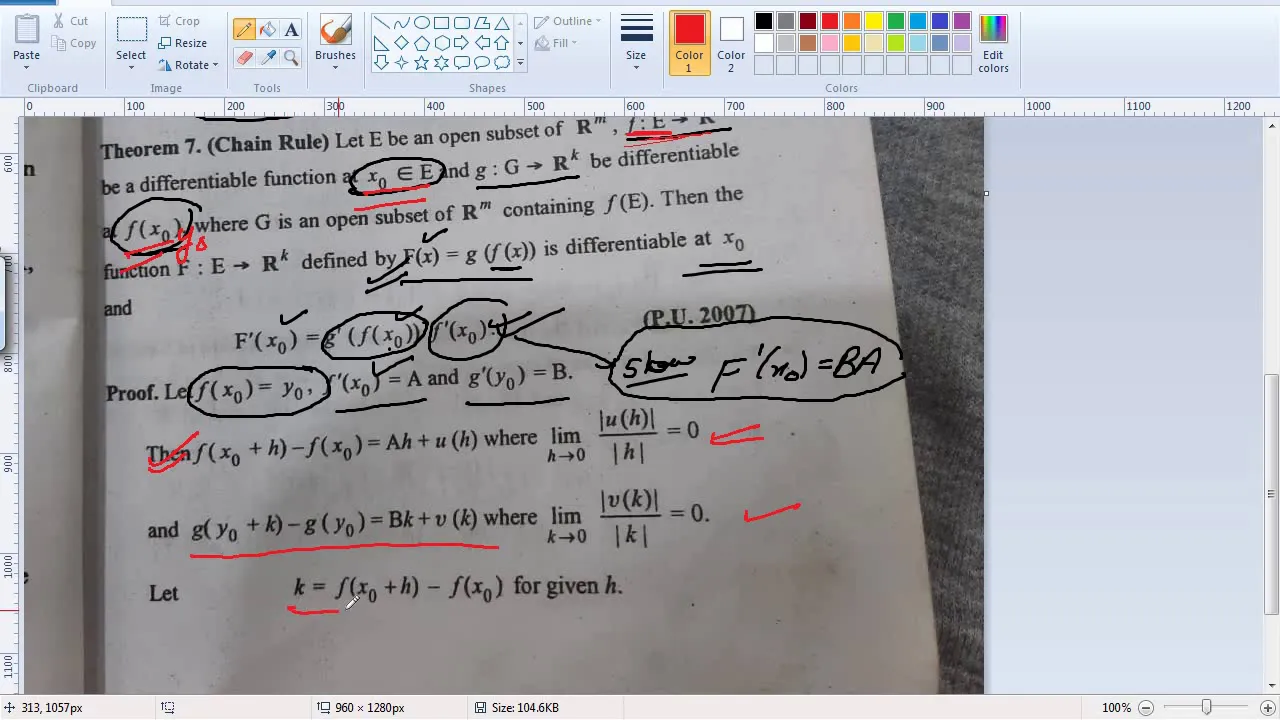 Cut
Copy
Paste
Clipboard
Select
Crop
Resize
Rotate
Image
A
Tools
Brushes
Shapes
Outline
Fill
Size
Color 1
Color 2
Edit colors
Colors
0 100 200 300 400 500 600 700 800 900 1000 1100 1200
600
800
900
1000
1100
Theorem 7. (Chain Rule) Let E be an open subset of Rᵐ, f : E → R
be a differentiable function a x₀ ∈ E and g : G → Rᵏ be differentiable
a f(x₀) y₀ where G is an open subset of Rᵐ containing f(E). Then the
function F : E → Rᵏ defined by F(x) = g (f(x)) is differentiable at x₀
and
F'(x₀) = g' (f(x₀)) f'(x₀). (P.U. 2007)
Show F'(x₀) = BA
Proof. Let f(x₀) = y₀, f'(x₀) = A and g'(y₀) = B.
Then f(x₀ + h) − f(x₀) = Ah + u (h) where lim h→0 |u(h)| / |h| = 0
and g(y₀ + k) − g(y₀) = Bk + v (k) where lim k→0 |v(k)| / |k| = 0.
Let k = f(x₀ + h) − f(x₀) for given h.
313, 1057px
960 × 1280px
Size: 104.6KB
100%